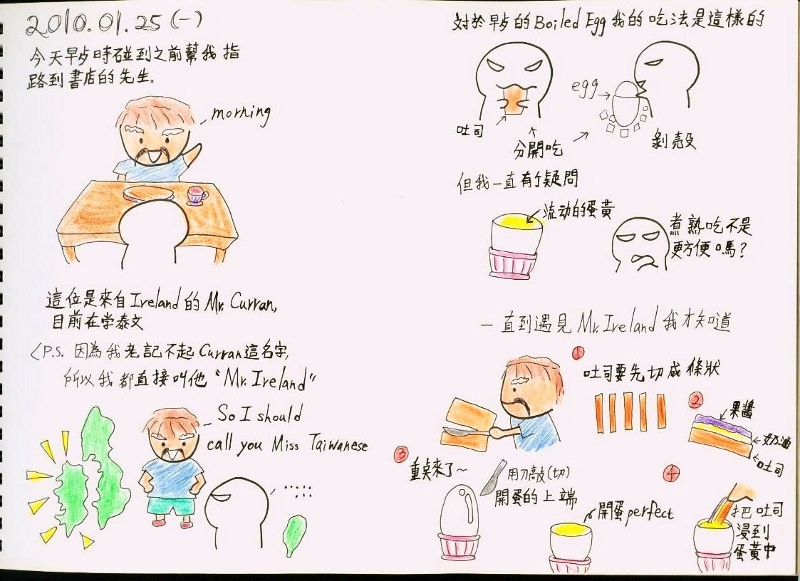 2010.01.25(一)
今天早歺時碰到之前幫我指
路到書店的先生.
morning
這位是來自Ireland的Mr. Curran,
目前在学泰文
<P.S. 因為我老記不起Curran這名字,
所以我都直接叫他"Mr. Ireland"
So I should
call you Miss Taiwanese
對於早歺的Boiled Egg我的吃法是這樣的
egg
吐司
分開吃
剝殼
但我一直有个疑問
流动的蛋黃
煮熟吃不是
更方便嗎?
一直到遇見Mr. Ireland我才知道
①
吐司要先切成條狀
②
果醬
奶油
吐司
③
重桌來了~
用刀敲(切)
開蛋的上端
開蛋perfect
④
把吐司
浸到
蛋黃中